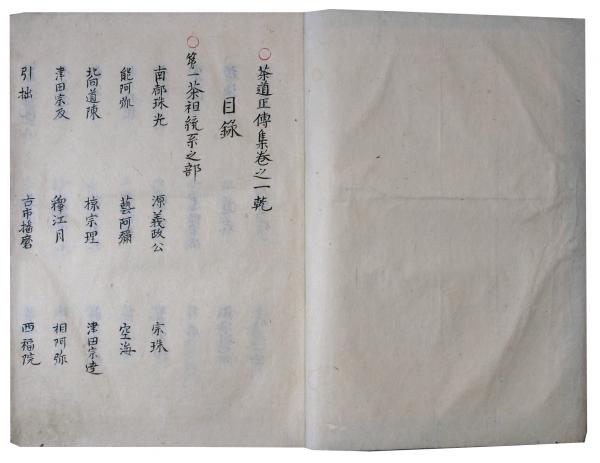 ○茶道正傳集巻之一乾
目録
○第一茶祖統系之部
南都珠光 源義政公 宗珠
能阿弥 藝阿彌 空海
北向道陳 椋宗理 津田宗達
津田宗及 釋江月 相阿弥
引拙 古市播磨 西福院